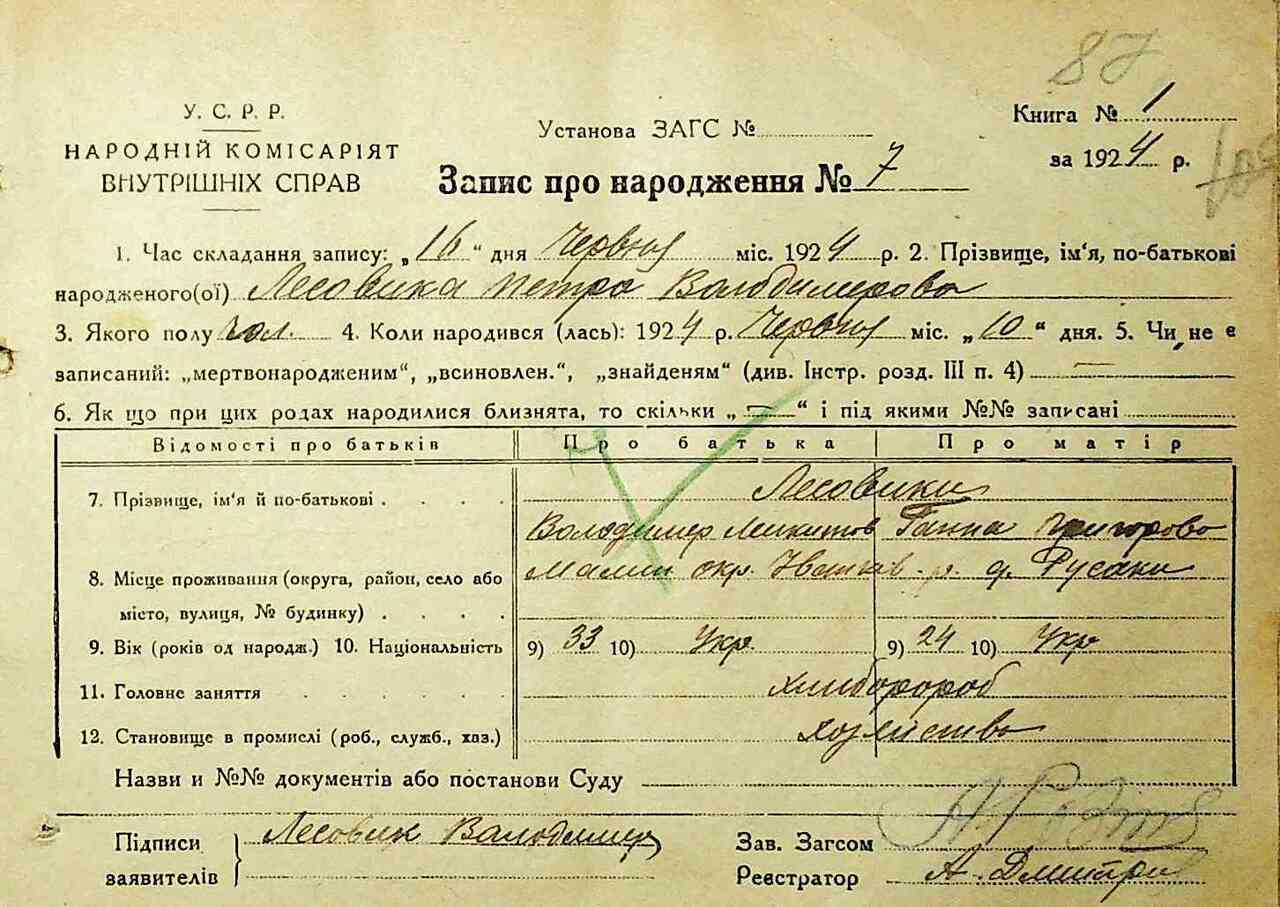 87
У. С. Р. Р.
НАРОДНІЙ КОМІСАРІЯТ
ВНУТРІШНІХ СПРАВ
Установа ЗАГС №
Книга № 1
за 1924 р.
Запис про народження № 7
1. Час складання запису: „16“ дня Червня міс. 1924 р. 2. Прізвище, ім'я, по-батькові
народженого(ої) Лесовика Петро Володимерово
3. Якого полу чол. 4. Коли народився (лась): 1924 р. Червня міс. „10“ дня. 5. Чи не є
записаний: „мертвонародженим“, „всиновлен.“, „знайденям“ (див. Інстр. розд. III п. 4) —
6. Як що при цих родах народилися близнята, то скільки „—“ і під якими №№ записані
Відомості про батьків Про батька Про матір
7. Прізвище, ім'я й по-батькові Лесовики
Володимер Микитов Ганна Григорово
8. Місце проживання (округа, район, село або Малин окр. р. Русаки
місто, вулиця, № будинку)
9. Вік (років од народж.) 10. Національність 9) 33 10) Укр. 9) 24 10) Укр
11. Головне заняття хлибороб
12. Становище в промислі (роб., служб., хаз.) хозяйство
Назви и №№ документів або постанови Суду
Підписи Лесовик Володимер
заявителів
Зав. Загсом
Реєстратор А. Дмитри